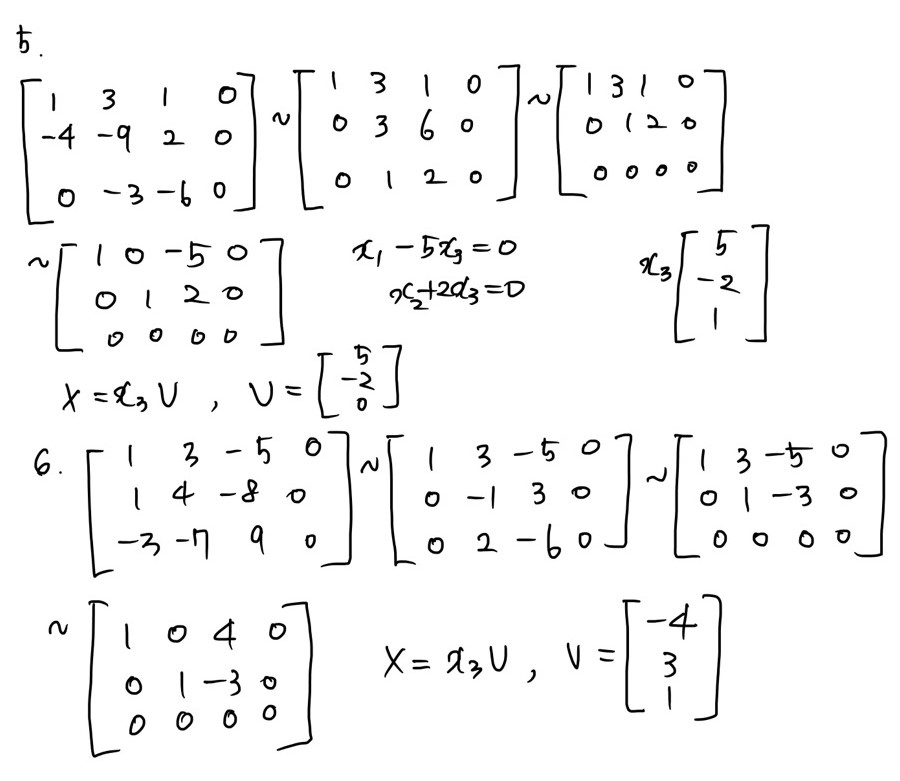 5.
[1 3 1 0; -4 -9 2 0; 0 -3 -6 0] ~ [1 3 1 0; 0 3 6 0; 0 1 2 0] ~ [1 3 1 0; 0 1 2 0; 0 0 0 0]
~ [1 0 -5 0; 0 1 2 0; 0 0 0 0] x₁ - 5x₃ = 0 x₂ + 2x₃ = 0 x₃ [5; -2; 1]
X = x₃ V , V = [5; -2; 0]
6. [1 3 -5 0; 1 4 -8 0; -3 -7 9 0] ~ [1 3 -5 0; 0 -1 3 0; 0 2 -6 0] ~ [1 3 -5 0; 0 1 -3 0; 0 0 0 0]
~ [1 0 4 0; 0 1 -3 0; 0 0 0 0] X = x₃ V , V = [-4; 3; 1]